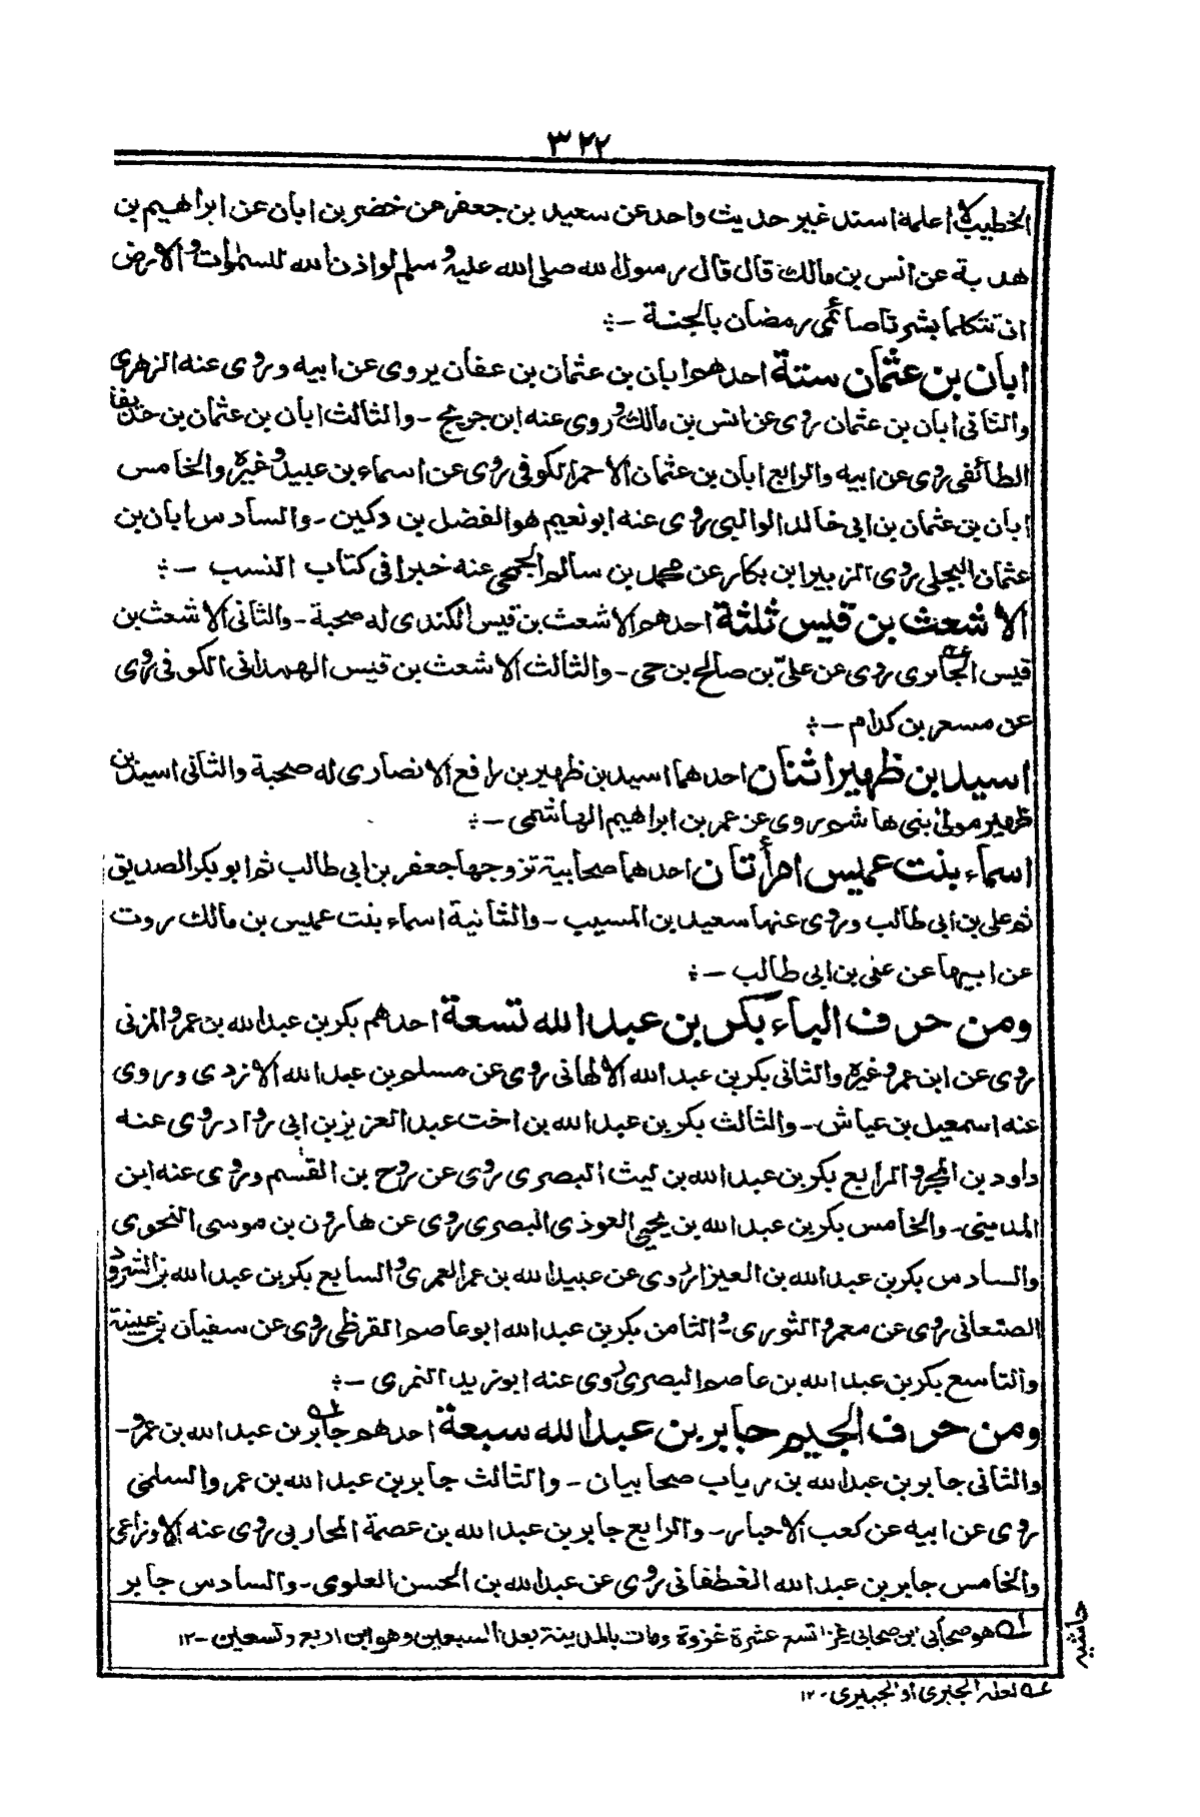 ٣٢٢
الخطيب لا اعلمه اسند غير حديث واحد عن سعيد بن جعفر عن خضر بن ابان عن ابراهيم بن
هدبة عن انس بن مالك قال قال رسول الله صلى الله عليه وسلم لو اذن الله للسمٰوات والارض
ان تتكلما بشرتا صائمى رمضان بالجنة -
ابان بن عثمان ستة احدهم ابان بن عثمان بن عفان يروى عن ابيه وروى عنه الزهرى
والثانى ابان بن عثمان روى عن انس بن مالك وروى عنه ابن جريج - والثالث ابان بن عثمان بن حذيفة
الطائفى روى عن ابيه والرابع ابان بن عثمان الاحمر الكوفى روى عن اسماء بن عبيد وغيره والخامس
ابان بن عثمان بن ابى خالد الوالبى روى عنه ابو نعيم هو الفضل بن دكين - والسادس ابان بن
عثمان البجلى روى الزبير ابن بكار عن محمد بن سالم الجمحى عنه خبرا فى كتاب النسب -
الاشعث بن قيس ثلثة احدهم الاشعث بن قيس الكندى له صحبة - والثانى الاشعث بن
قيس الجابرى روى عن علىّ بن صالح بن حى - والثالث الاشعث بن قيس الهمدانى الكوفى روى
عن مسعر بن كدام -
اسيد بن ظهير اثنان احدهما اسيد بن ظهير بن رافع الانصارى له صحبة والثانى اسيد بن
ظهير مولى بنى هاشم روى عن عمر بن ابراهيم الهاشمى -
اسماء بنت عميس امرأتان احدهما صحابية تزوجها جعفر بن ابى طالب ثم ابو بكر الصديق
ثم على بن ابى طالب وروى عنها سعيد بن المسيب - والثانية اسماء بنت عميس بن مالك روت
عن ابيها عن على بن ابى طالب -
ومن حرف الباء بكر بن عبد الله تسعة احدهم بكر بن عبد الله بن عمرو المزنى
روى عن ابن عمر وغيره والثانى بكر بن عبد الله الالهانى روى عن مسلم بن عبد الله الازدى وروى
عنه اسمعيل بن عياش - والثالث بكر بن عبد الله بن اخت عبد العزيز بن ابى رواد روى عنه
داود بن المجبر والرابع بكر بن عبد الله بن ليث البصرى روى عن روح بن القٰسم وروى عنه ابن
المدينى - والخامس بكر بن عبد الله بن يحيى العوذى البصرى روى عن هارون بن موسى النحوى
والسادس بكر بن عبد الله بن العيزار روى عن عبيد الله بن عمر العمرى والسابع بكر بن عبد الله بن الشرود
الصنعانى روى عن معمر والثورى - والثامن بكر بن عبد الله ابو عاصم القرظى روى عن سفيان بن عيينة
والتاسع بكر بن عبد الله بن عاصم البصرى روى عنه ابو زيد النمرى -
ومن حرف الجيم جابر بن عبد الله سبعة احدهم جابر بن عبد الله بن عمرو -
والثانى جابر بن عبد الله بن رياب صحابيان - والثالث جابر بن عبد الله بن عمرو السلمى
روى عن ابيه عن كعب الاحبار - والرابع جابر بن عبد الله بن عصمة المحاربى روى عنه الاوزاعى
والخامس جابر بن عبد الله الغطفانى روى عن عبد الله بن الحسن العلوى - والسادس جابر
له هو صحابى ابن صحابى غزا تسع عشرة غزوة ومات بالمدينة بعد السبعين وهو ابن اربع وتسعين - ١٢
حاشيه
عه لعله الجنبرى او الجبيرى - ١٢